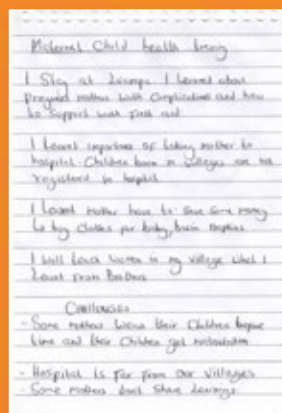 Maternal Child health
I Stay at I learned about
Pregnant mothers with Complications and how
to Support with First aid
I Learnt importance of taking mother to
hospital. Children born in villages are not
registered in hospital
I Learnt mother have to Save Some money
to buy clothes for baby, basin Napkins
I will teach women in my village what I
Learnt from
Challenges
- Some mothers their Children before
time and their Children get malnutrition
- Hospital is Far From our Villages
- Some mothers don't Share